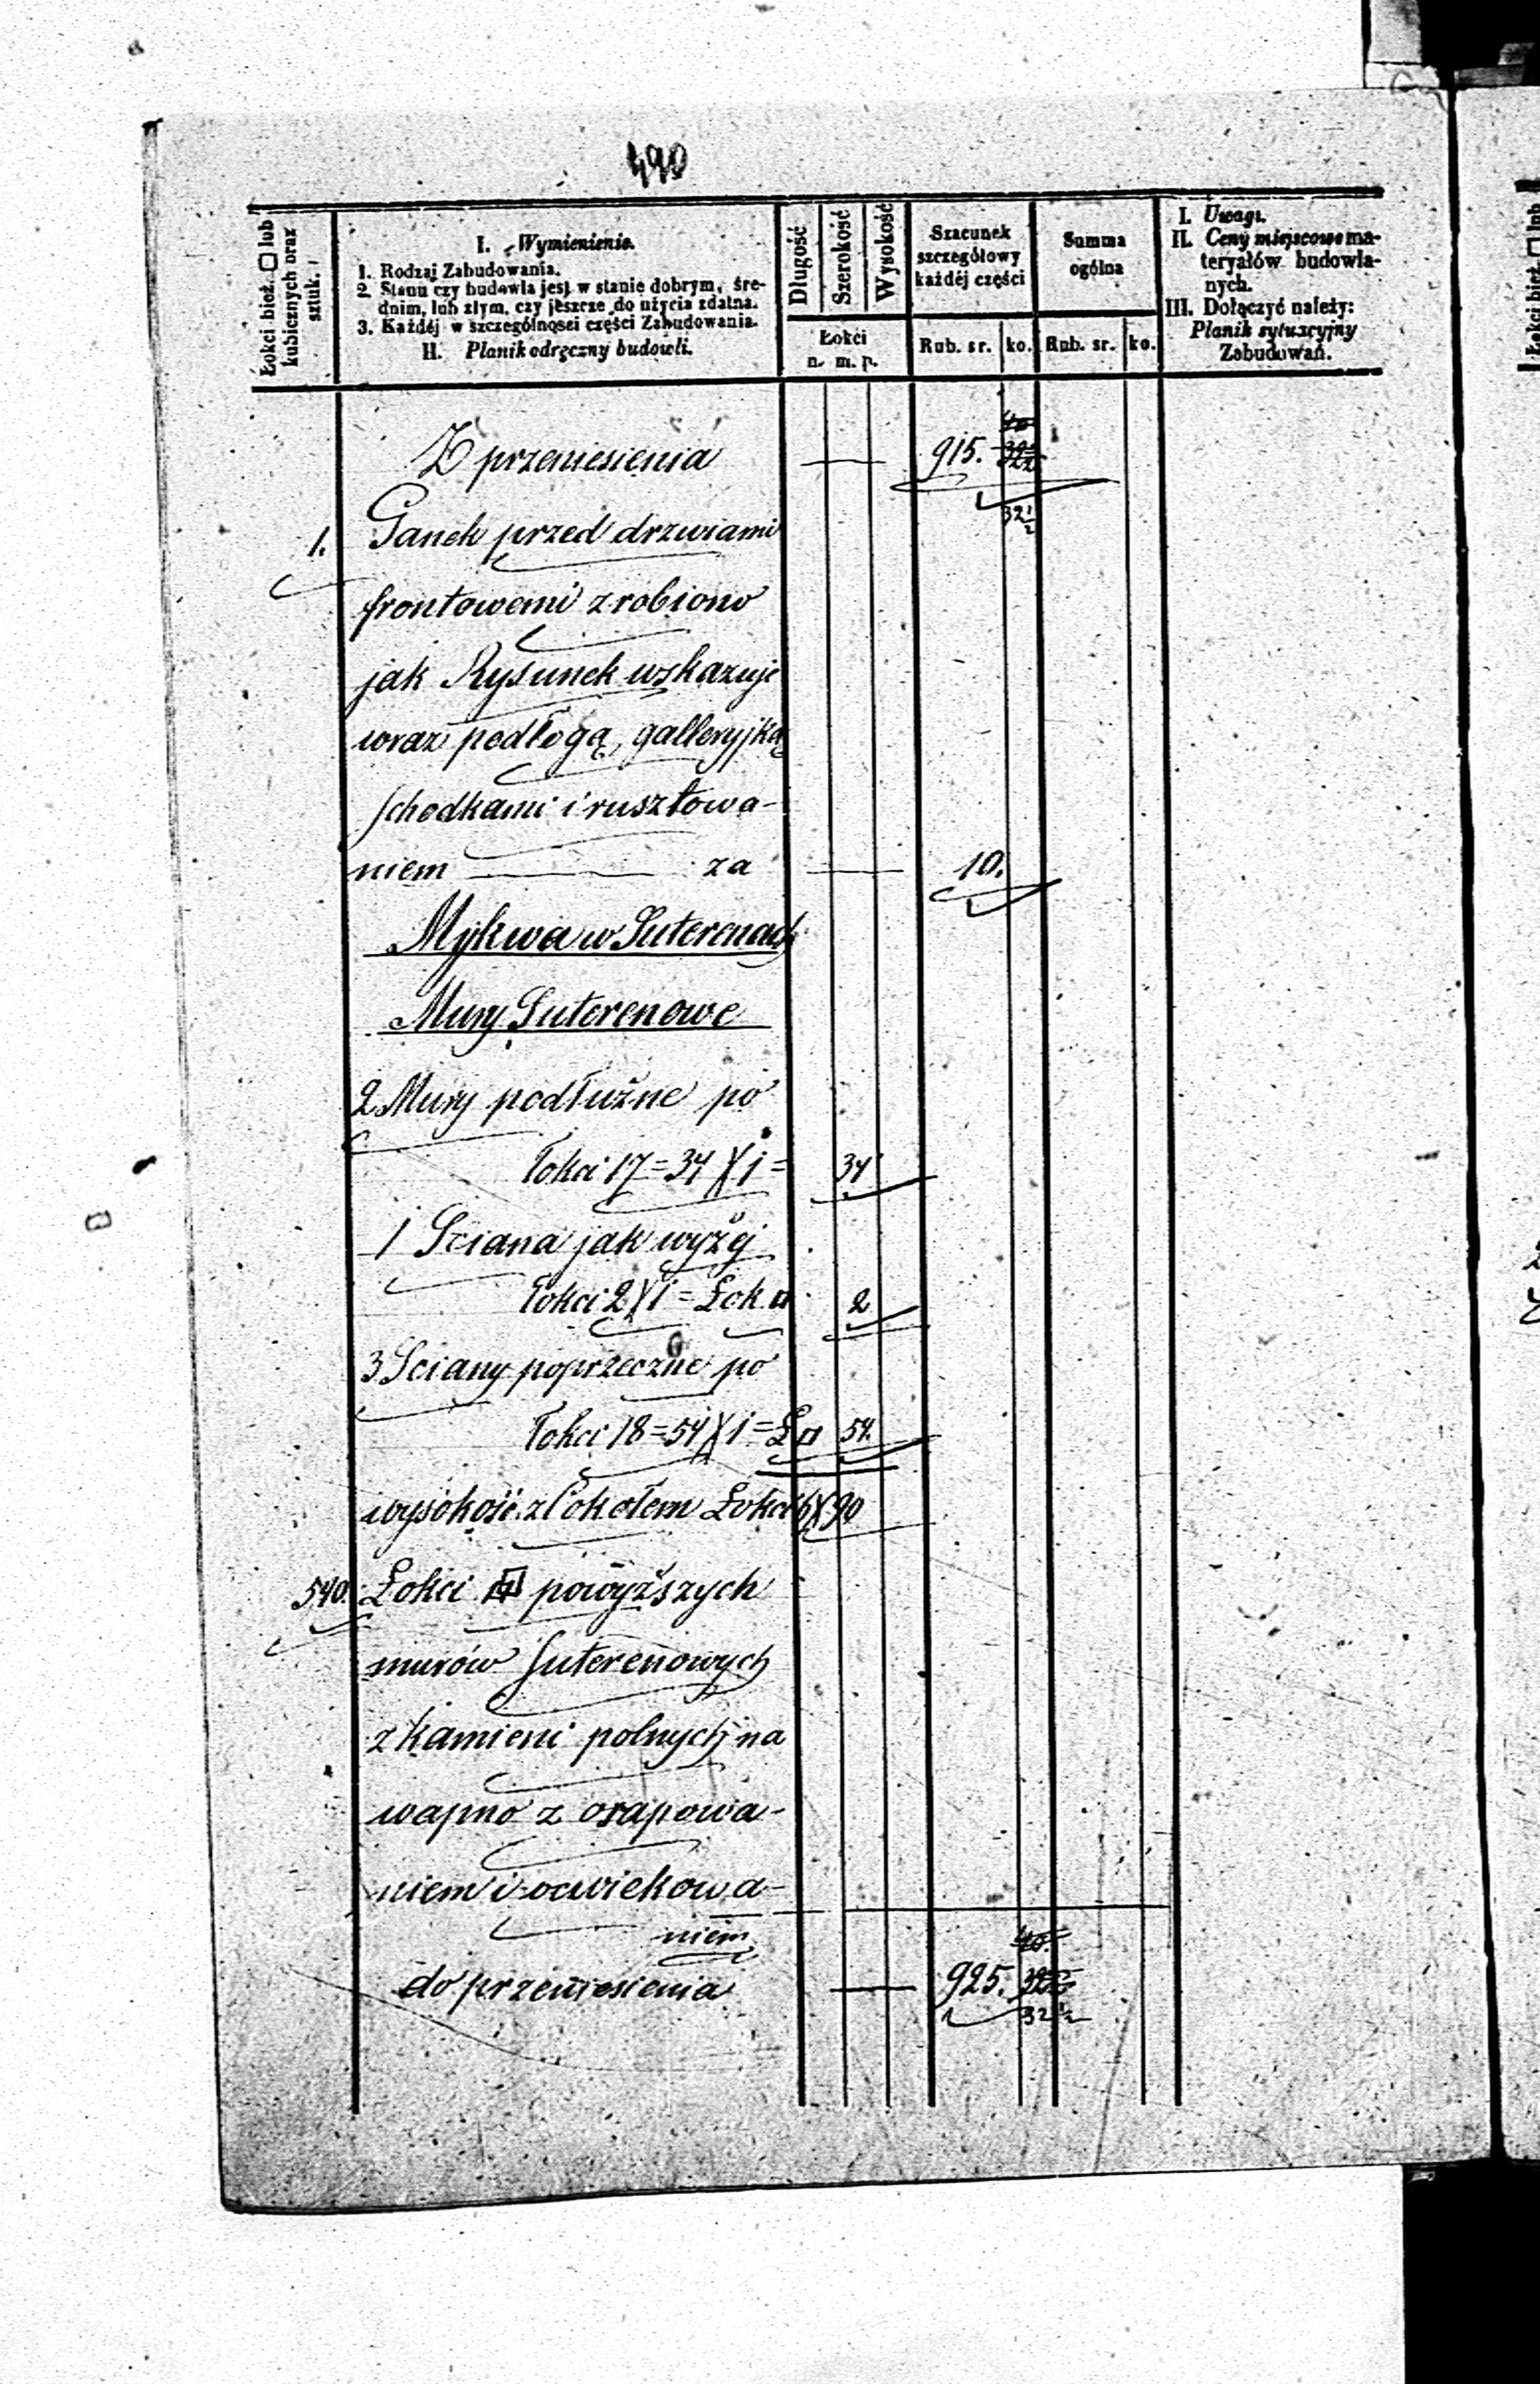 490
Łokci bież. □ lub
kubicznych oraz
sztuk.
I. Wymienienie.
1. Rodzaj Zabudowania.
2. Stanu czy budowla jest w stanie dobrym, śre-
dnim, lub złym, czy jeszcze do użycia zdatna.
3. Każdéj w szczególnosci części Zabudowania.
II. Planik odręczny budowli.
Długość
Szerokość
Wysokość
Łokci
n. m. p.
Szacunek
szczegółowy
każdéj części
Rub. sr. ko.
Summa
ogólna
Rub. sr. ko.
I. Uwagi.
II. Ceny miejscowe ma-
teryałów budowla-
nych.
III. Dołączyć należy:
Planik sytuacyjny
Zabudowań.
Z przeniesienia — 915.
32½
1. Ganek przed drzwiami
frontowemi zrobiono
jak Rysunek wskazuje
wraz podłogą, galleryjką
schodkami i rusztowa-
niem — za — 10.
Mykwa w Suterenach
Mury Suterenowe
2 Mury podłużne po
łokci 17 = 34 X 1 = 34
1 Sciana jak wyżej
łokci 2 X 1 = Łok □ 2
3 Sciany poprzeczne po
łokci 18 = 54 X 1 = Ł □ 54.
wysokość z Cokołem Łokci 6 X 90
540. Łokci powyższych
murów Suterenowych
z kamieni polnych na
wapno z orapowa-
niem i ocwiekowa-
niem
do przeniesienia — 925.
32½